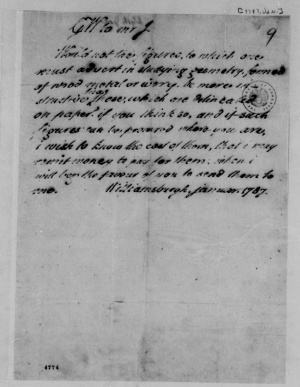 GW to mr J.
9
Would not the figures, to which one
must advert in studying geometry, formed
of wood metal or ivory, be more in-
structive than these, which are delineated
on paper. if you think so, and if such
figures can be procured where you are,
i wish to know the cost of them, that i may
remit money to pay for them. when i
will beg the favour of you to send them to
me. Williamsburgh, januar. 1787.
4774